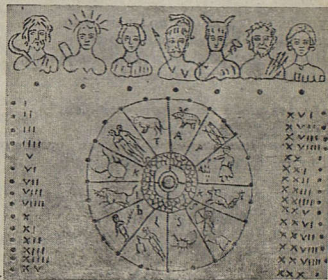 I
II
III
IIII
V
VI
VII
VIII
VIIII
X
XI
XII
XIII
XIIII
XV
A
P
T
L
S
XVI
XVII
XVIII
XVIIII
XX
XXI
XXII
XXIII
XXIIII
XXV
XXVI
XXVII
XXVIII